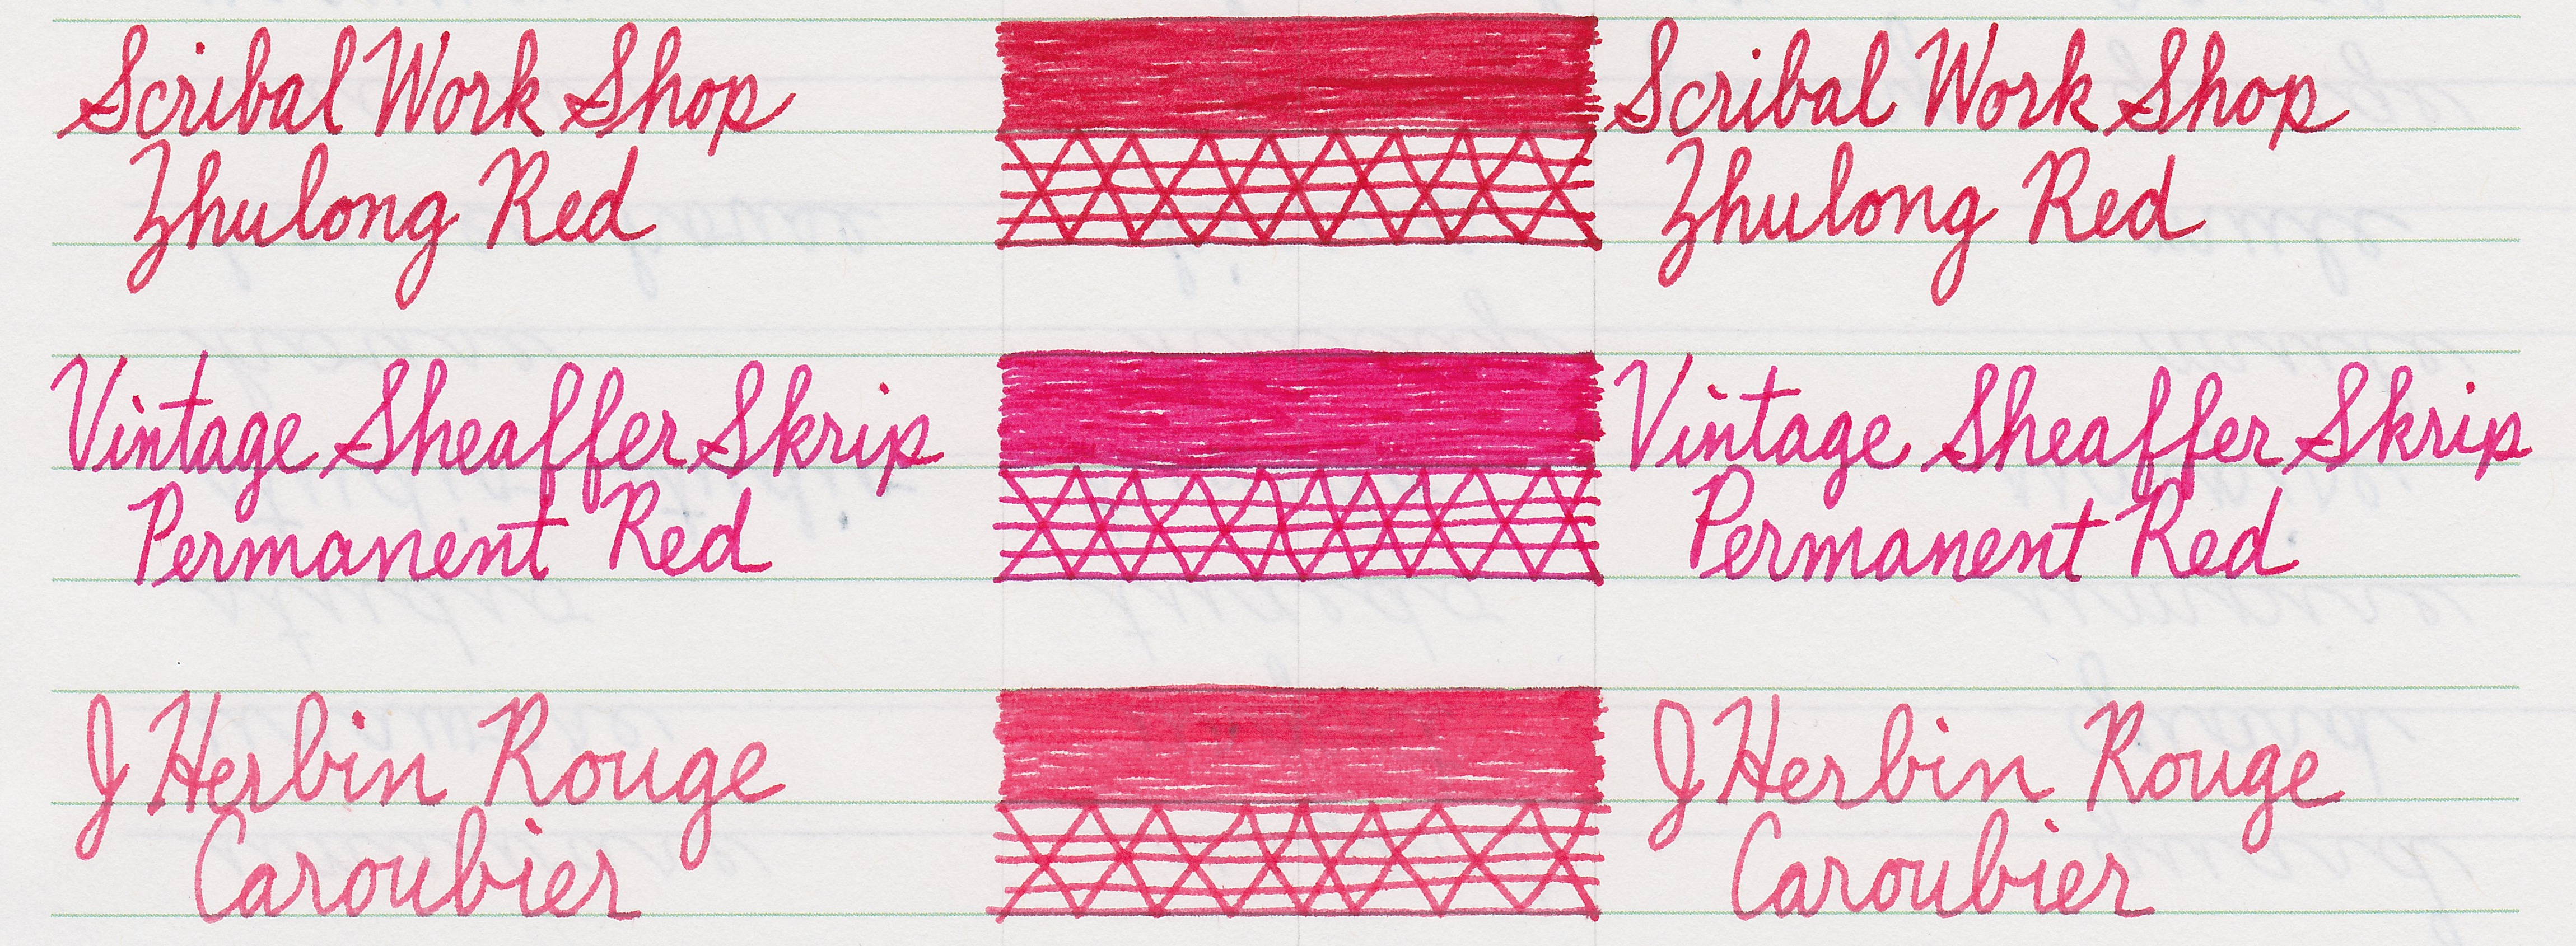 Scribal Work Shop
Zhulong Red
Scribal Work Shop
Zhulong Red
Vintage Sheaffer Skrip
Permanent Red
Vintage Sheaffer Skrip
Permanent Red
J Herbin Rouge
Caroubier
J Herbin Rouge
Caroubier